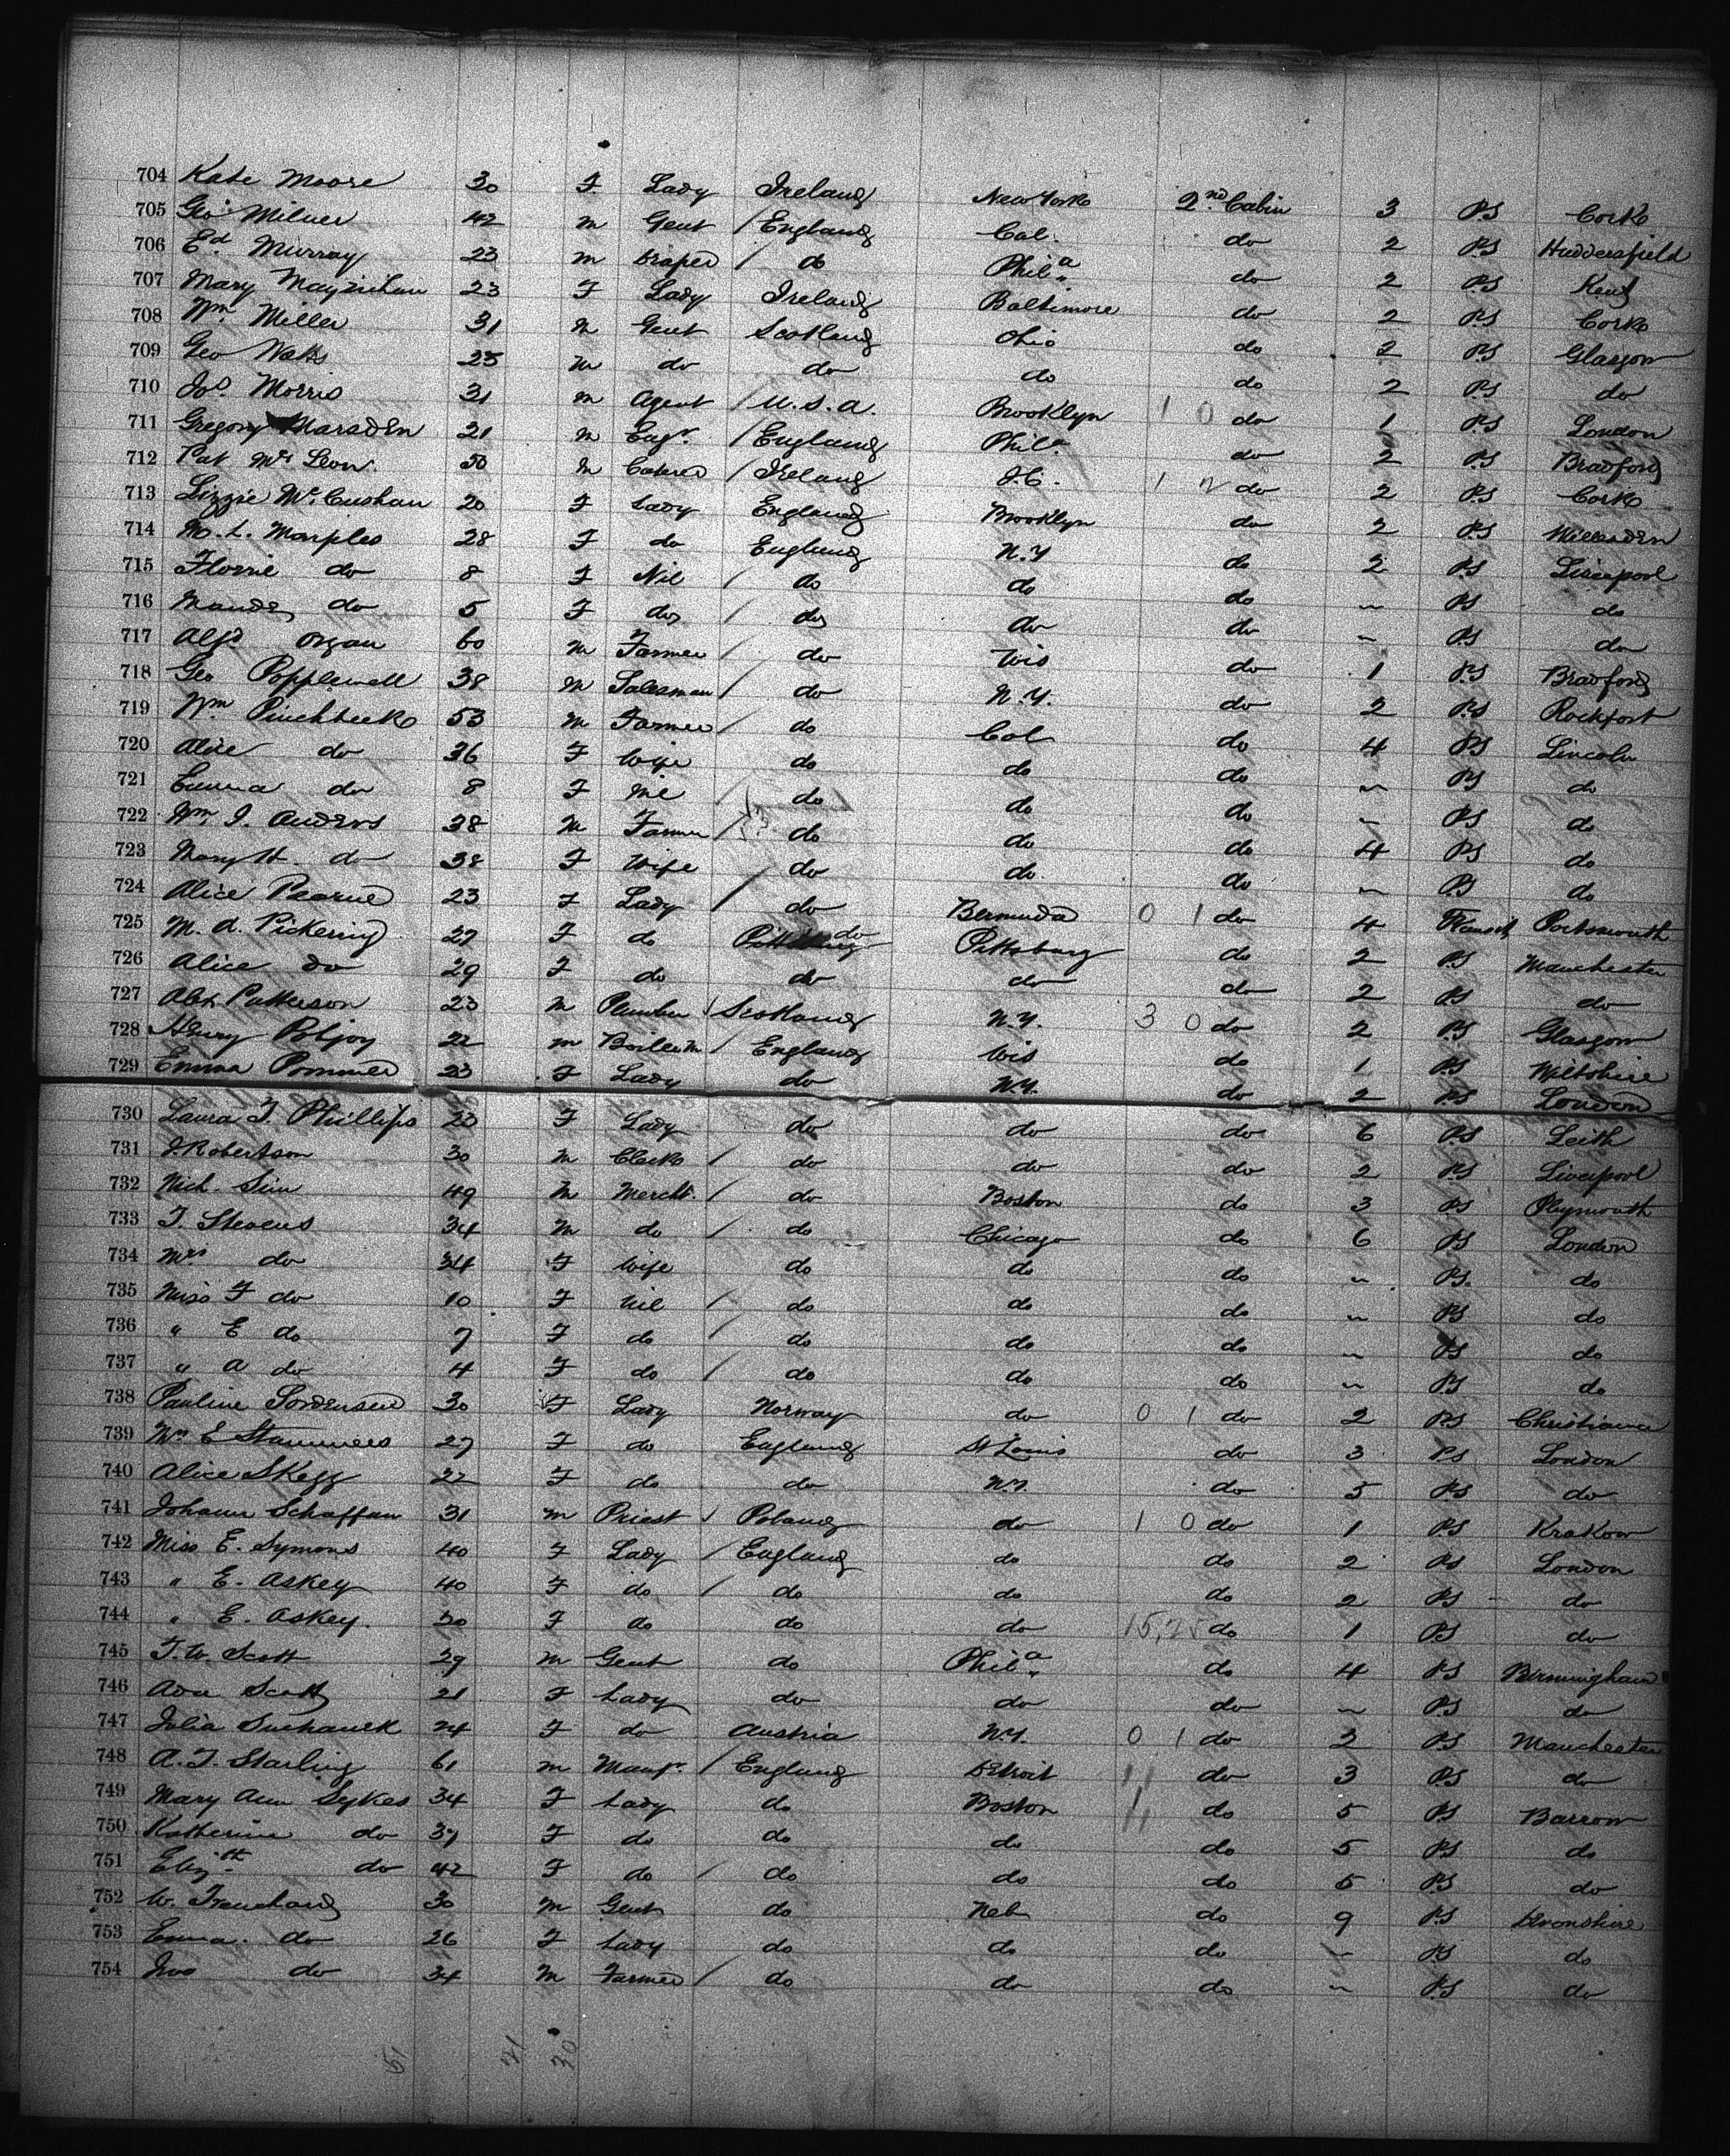 704 Kate Moore 30 F. Lady Ireland New York 2nd Cabin 3 PS Cork
705 Geo Milner 42 M Gent / England Cal. do 2 PS Huddersfield
706 Ed Murray 23 M Draper / do Phila do 2 PS Kent
707 Mary 23 F Lady Ireland Baltimore do 2 PS Cork
708 Wm Miller 31 M Gent Scotland Ohio do 2 PS Glasgow
709 Geo Watts 25 M do do do do 2 PS do
710 Jos. Morris 31 M Agent / U.S.A. Brooklyn 1 0 do 1 PS London
711 Gregory Marsden 21 M Engr. / England Phila do 2 PS Bradford
712 Pat 50 M / Ireland J.C. 1 2 do 2 PS Cork
713 Lizzie 20 F Lady England Brooklyn do 2 PS Willesden
714 M. L. Marples 28 F do England N.Y do 2 PS Liverpool
715 Florrie do 8 F Nil / do do do " PS do
716 Maude do 5 F do / do do do " PS do
717 Alfd Organ 60 M Farmer / do Wis do 1 PS Bradford
718 Geo Popplewell 38 M Salesman / do N.Y. do 2 PS Rockfort
719 Wm Pinchbeck 53 M Farmer / do Col do 4 PS Lincoln
720 Alice do 36 F Wife do do do " PS do
721 Emma do 8 F Nil / do do do " PS do
722 Wm J. Anders 38 M Farmer / do do do 4 PS do
723 Mary H. do 38 F Wife do do do " PS do
724 Alice Pearne 23 F Lady / do Bermuda 0 1 do 4 Transit Portsmouth
725 M. A. Pickering 27 F do do Pittsburg do 2 PS Manchester
726 Alice do 29 F do do do do 2 PS do
727 Alex Patterson 23 M Plumber / Scotland N.Y. 3 0 do 2 PS Glasgow
728 Henry Poljoy 22 M / England Wis do 1 PS Wiltshire
729 Emma 23 F Lady do N.Y. do 2 PS London
730 Laura T. Phillips 20 F Lady do do do 6 PS Leith
731 J. Robertson 30 M Clerk / do do do 2 PS Liverpool
732 Nich. Sim 49 M Mercht. / do Boston do 3 PS Plymouth
733 T. Stevens 34 M do / do Chicago do 6 PS London
734 Mrs do 34 F Wife do do do " PS. do
735 Miss F do 10 F Nil / do do do " PS do
736 " E do 7 F do / do do do " PS do
737 " A do 4 F do / do do do " PS do
738 Pauline Sordensen 30 F Lady Norway do 0 1 do 2 PS Christiania
739 Mrs E Stammers 27 F do England St Louis do 3 PS London
740 Alice Skegg 22 F do do N.Y. do 5 PS do
741 Johann Schaffan 31 M Priest / Poland do 1 0 do 1 PS Krakow
742 Miss E. Symons 40 F Lady / England do do 2 PS London
743 " E. Askey 40 F do / do do do 2 PS do
744 " E. Askey. 20 F do do do 15,25 do 1 PS do
745 T. W. Scott 29 M Gent do Phila do 4 PS Birmingham
746 Ada Scott 21 F Lady do do do " PS do
747 Julia Suchanek 24 F do Austria N.Y. 0 1 do 2 PS Manchester
748 A. T. Starling 61 M Manfr. / England Detroit do 3 PS do
749 Mary Ann Sykes 34 F Lady do Boston do 5 PS Barrow
750 Katherine do 37 F do do do do 5 PS do
751 Elizth do 42 F do / do do do 5 PS do
752 W. Trenchard 30 M Gent do Neb do 9 PS Devonshire
753 Emma do 26 F Lady do do do " PS do
754 Jno do 34 M Farmer / do do do " PS do
51 21 30